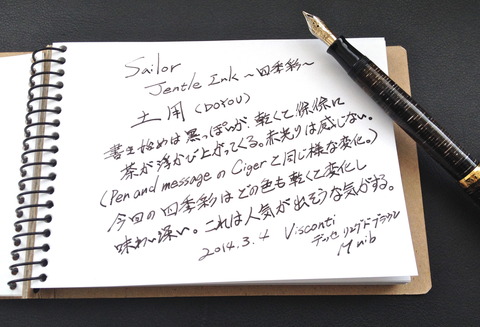 Sailor
Jentle Ink ～四季彩～
土用 (DOYOU)
書き始めは黒っぽいが、乾くと徐々に
茶が浮かび上がってくる。赤光りは感じない。
(Pen and messageのCigerと同じ様な変化。)
今回の四季彩はどの色も乾くと変化し
味わい深い。これは人気が出そうな気がする。
2014.3.4 Visconti
ディバイナ
M nib